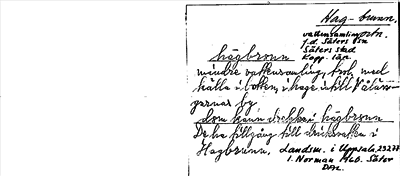 Hag-brunn.
vattensamling, ptn.
f.d. Säters lsn
Säters stad
Kopp. län
hågbronn
mindre vattensamling, trol. med
källa i botten, i hage intill
garnas by
dom kunn drekka i hågbronn
De ha tillgång till dricksvatten i
Hagbrunn. Landsm. i Uppsala, 232:77
I. Norman Hed. Säter
DAL.